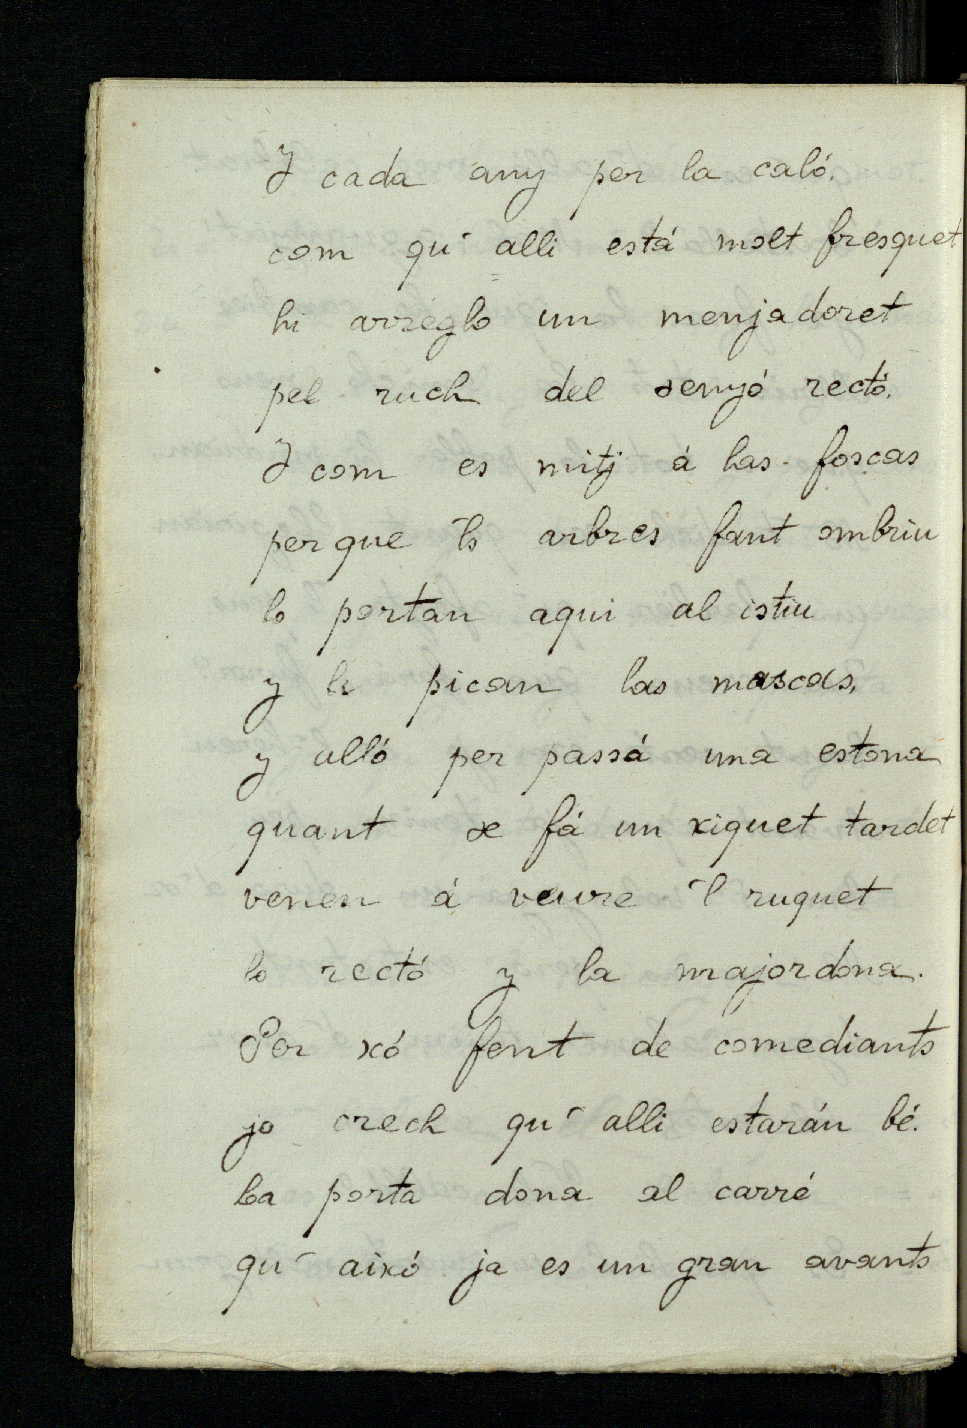 Y cada any per la caló.
com qu' alli está molt fresquet
hi arréglo un menjadoret
pel ruch del senyó rectó.
Y com es mitj á las foscas
perque 'ls arbres fant ombriu
lo portan aqui al istiu
y li pican las moscas,
y alló per passá una estona
quant se fá un xiquet tardet
venen á veure 'l ruquet
lo rectó y la majordona.
Per xó fent de comediants
jo crech qu' alli estarán bé.
La porta dona al carré
qu' aixó ja es un gran avants